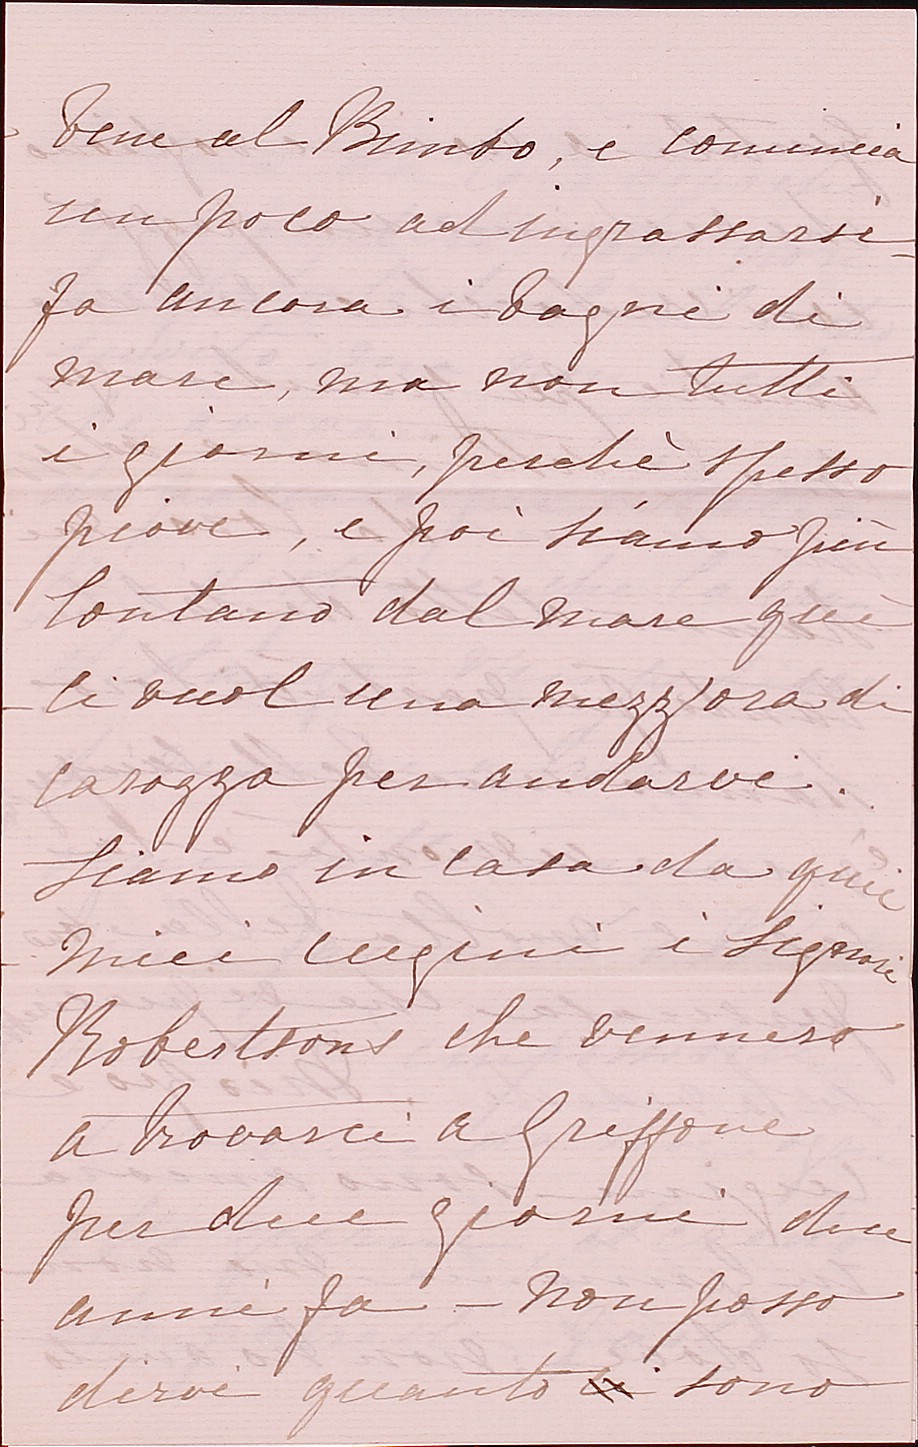 bene al Bimbo, e comincia
un poco ad ingrassarsi -
fa ancora i bagni di
mare, ma non tutti
i giorni, perchè spesso
piove, e poi siamo più
lontano dal mare qui
ci vuol una mezz'ora di
carozza per andarvi.
Siamo in casa da quei
miei cugini i Signori
Robertsons che vennero
a trovarci a Griffone
per due giorni due
anni fa - non posso
dirvi quanto ci sono